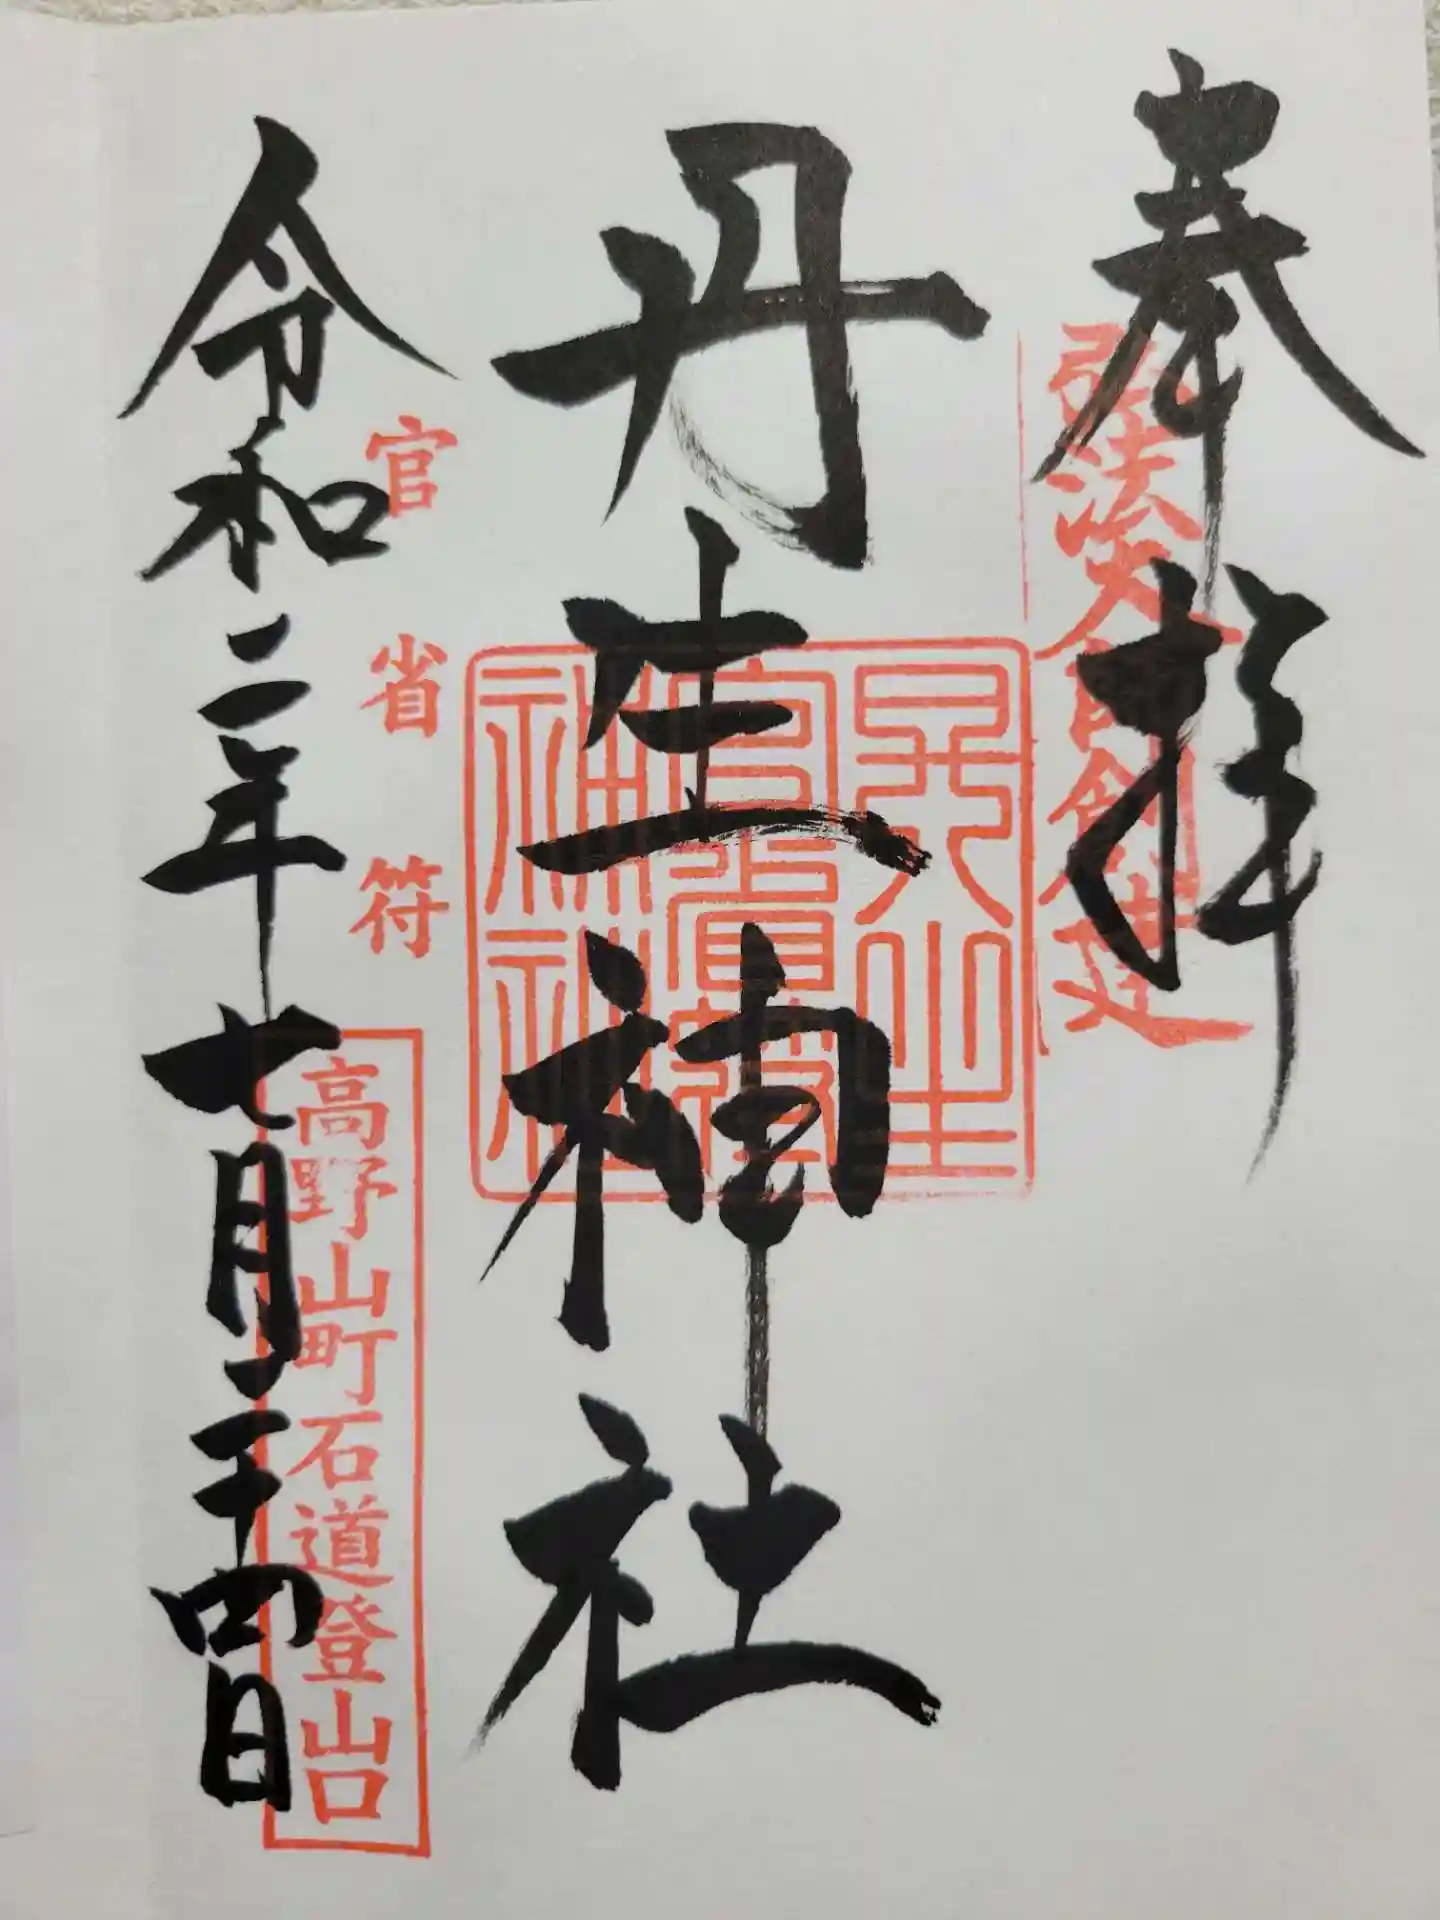 奉拝
弘法大師創建
丹生神社
丹生
官省符
神社
官省符
高野山町石道登山口
令和二年七月二十四日